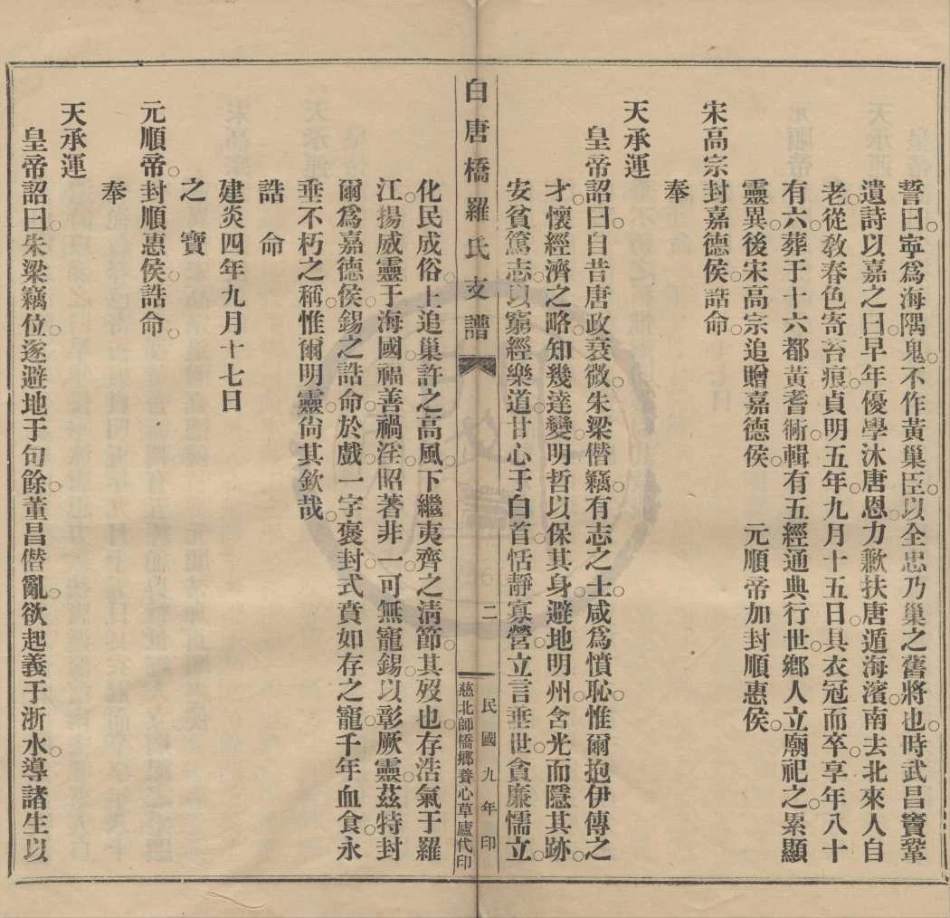 誓曰寧爲海隅鬼不作黃巢臣以全忠乃巢之舊將也時武昌竇鞏
遺詩以嘉之曰早年優學沐唐恩力歉扶唐遁海濱南去北來人自
老從教春色寄苔痕貞明五年九月十五日具衣冠而卒享年八十
有六葬于十六都黃耆衕輯有五經通典行世鄉人立廟祀之累顯
靈異後宋高宗追贈嘉德侯 元順帝加封順惠侯
宋高宗封嘉德侯誥命
奉
天承運
皇帝詔曰自昔唐政衰微朱梁僭竊有志之士咸爲憤恥惟爾抱伊傅之
才懷經濟之略知幾達變明哲以保其身避地明州含光而隱其跡
安貧篤志以窮經樂道甘心于白首恬靜寡營立言垂世貪廉懦立
白唐橋羅氏支譜
二
民國九年印
慈北師橋鄉養心草廬代印
化民成俗上追巢許之高風下繼夷齊之淸節其歿也存浩氣于羅
江揚威靈于海國福善禍淫昭著非一可無寵錫以彰厥靈茲特封
爾爲嘉德侯錫之誥命於戲一字褒封式賁如存之寵千年血食永
垂不朽之稱惟爾明靈尙其欽哉
誥命
建炎四年九月十七日
之寶
元順帝封順惠侯誥命
奉
天承運
皇帝詔曰朱梁竊位遂避地于句餘董昌僭亂欲起義于浙水導諸生以